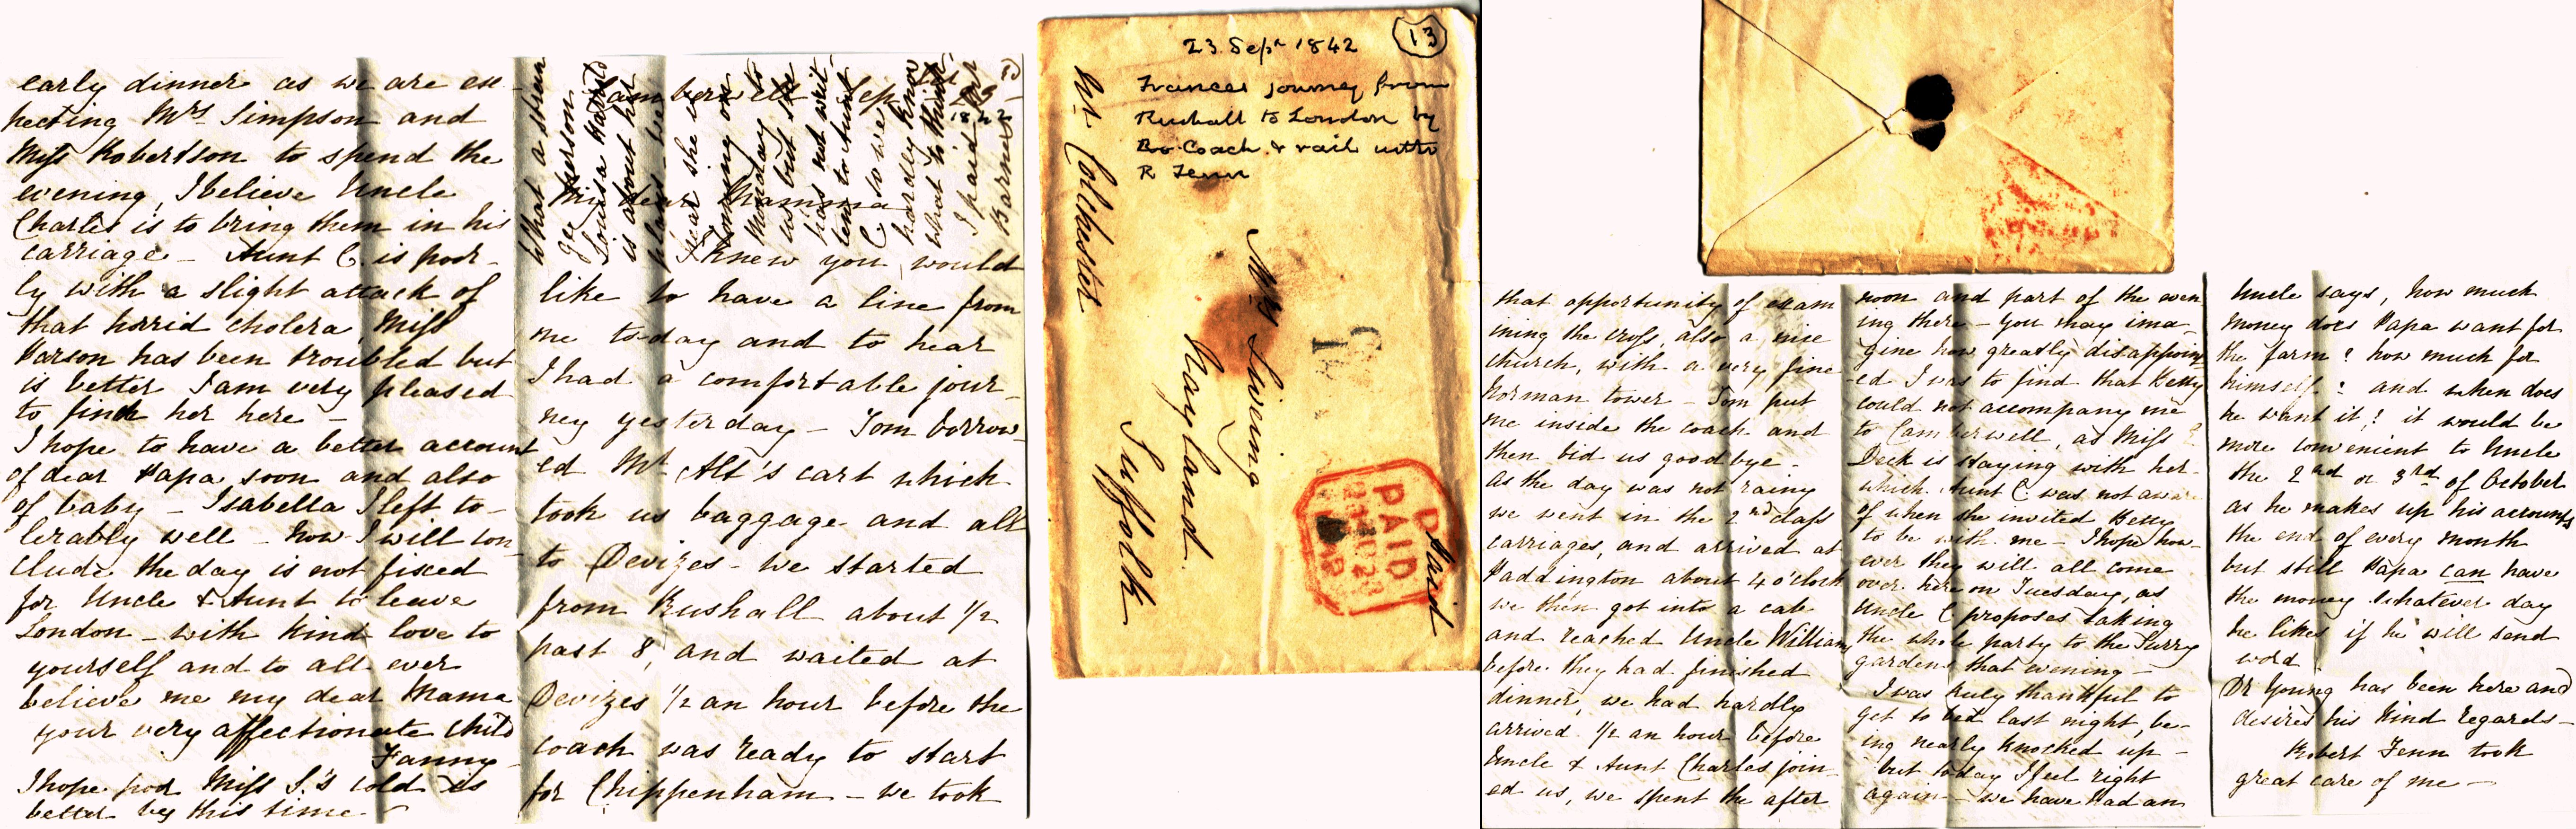 Camberwell Sep 23rd
1842
My dear Mamma
I knew you would
like to have a line from
me today and to hear
I had a comfortable jour-
ney yesterday - Tom borrow-
ed Mr Alt's cart which
took us baggage and all
to Devizes - we started
from Rushall about 1/2
past 8, and waited at
Devizes 1/2 an hour before the
coach was ready to start
for Chippenham - we took
that opportunity of exam
ining the cross, also a nice
church, with a very fine
Norman tower - Tom put
me inside the coach and
then bid us goodbye.
As the day was not rainy
we went in the 2nd class
carriages, and arrived at
Paddington about 4 o'clock
we then got into a cab
and reached Uncle William
before they had finished
dinner, we had hardly
arrived 1/2 an hour before
Uncle & Aunt Charles join-
ed us, we spent the after
noon and part of the even
ing there - you may ima-
gine how greatly disappoint
-ed I was to find that Betsy
could not accompany me
to Camberwell, as Miss
Deck is staying with her
which Aunt C. was not aware
of when she invited Betsy
to be with me - I hope how-
ever they will all come
over here on Tuesday, as
Uncle C proposes taking
the whole party to the Surry
gardens that evening -
I was truly thankful to
get to bed last night, be-
ing nearly knocked up -
but today I feel right
again - we have had an
early dinner as we are ex-
pecting Mrs Simpson and
Miss Robertson to spend the
evening, I believe Uncle
Charles is to bring them in his
carriage - Aunt C. is poor-
ly with a slight attack of
that horrid cholera, Miss
Parson has been troubled but
is better I am very pleased
to find her here -
I hope to have a better account
of dear Papa soon and also
of baby - Isabella I left to-
lerably well - now I will con-
clude the day is not fixed
for Uncle & Aunt to leave
London - with kind love to
yourself and to all ever
believe me my dear Mama
your very affectionate child
Fanny
I hope poor Miss S.'s cold is
better by this time -
Uncle says, how much
money does Papa want for
the farm? how much for
himself? and when does
he want it? it would be
more convenient to Uncle
the 2nd or 3rd of October
as he makes up his accounts
the end of every month
but still Papa can have
the money whatever day
he likes if he will send
word
Dr Young has been here and
desires his kind regards -
Robert Fenn took
great care of me -
What a stran
ge person
Louisa
is about her
plans - we
hear she is
coming on
Monday to
us but she
has not writ-
ten to Aunt
C. so we
hardly know
what to think
I paid
Barnes
13
23 Sepr 1842
Frances journey from
Rushall to London by
Coach & rail with
R Fenn
Paid
Mrs Liveing
Nayland
Suffolk
Nr Colchester
PAID